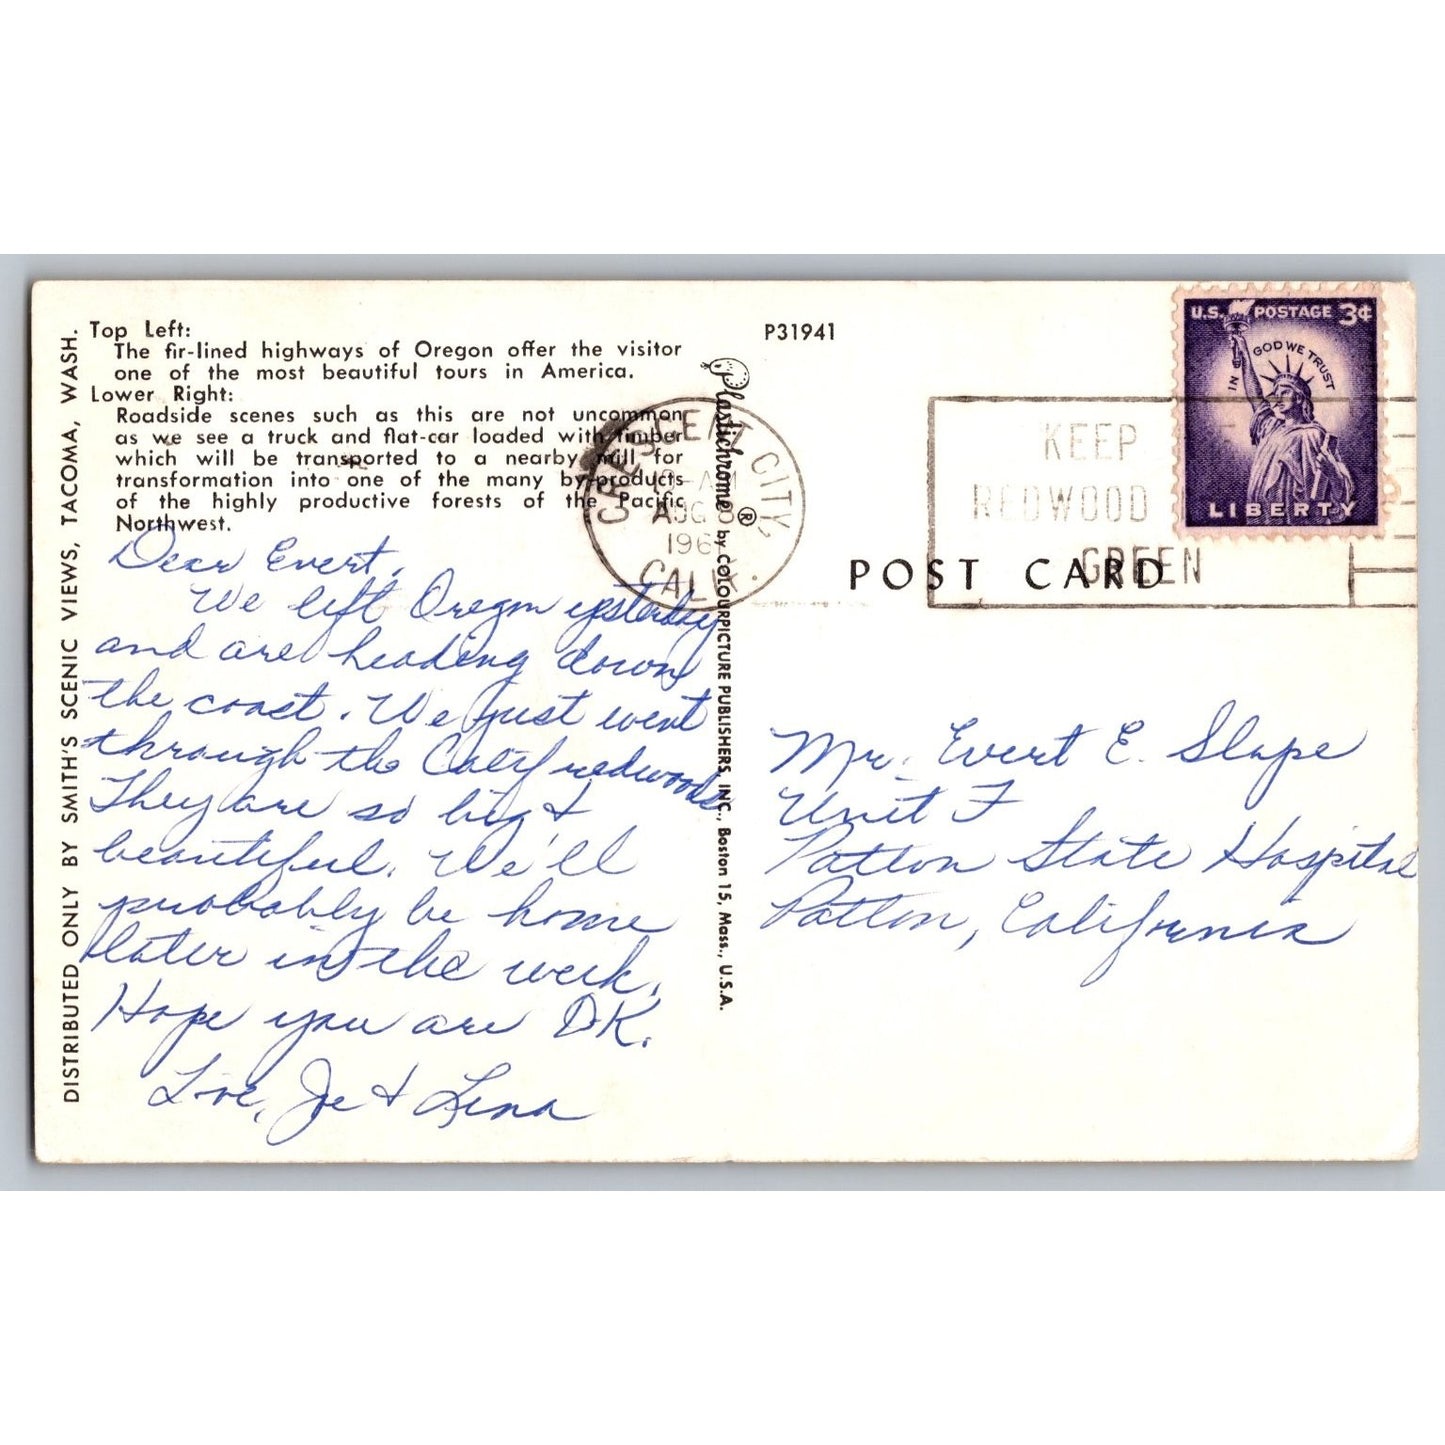 Top Left:
The fir-lined highways of Oregon offer the visitor
one of the most beautiful tours in America.
Lower Right:
Roadside scenes such as this are not uncommon
as we see a truck and flat-car loaded with timber
which will be transported to a nearby mill for
transformation into one of the many by-products
of the highly productive forests of the Pacific
Northwest.
DISTRIBUTED ONLY BY SMITH'S SCENIC VIEWS, TACOMA, WASH.
Dear Evert,
We left Oregon yesterday
and are heading down
the coast. We just went
through the Calif redwoods
They are so big &
beautiful. We'll
probably be home
later in the week.
Hope you are O.K.
Love, Je & Lena
Plastichrome ® by COLOURPICTURE PUBLISHERS, INC., Boston 15, Mass., U.S.A.
P31941
CRESCENT CITY,
AM
AUG
196
CALIF.
KEEP
REDWOOD
GREEN
U.S. POSTAGE 3¢
IN GOD WE TRUST
LIBERTY
POST CARD
Mr. Evert E. Slape
Unit F
Patton State Hospital
Patton, California